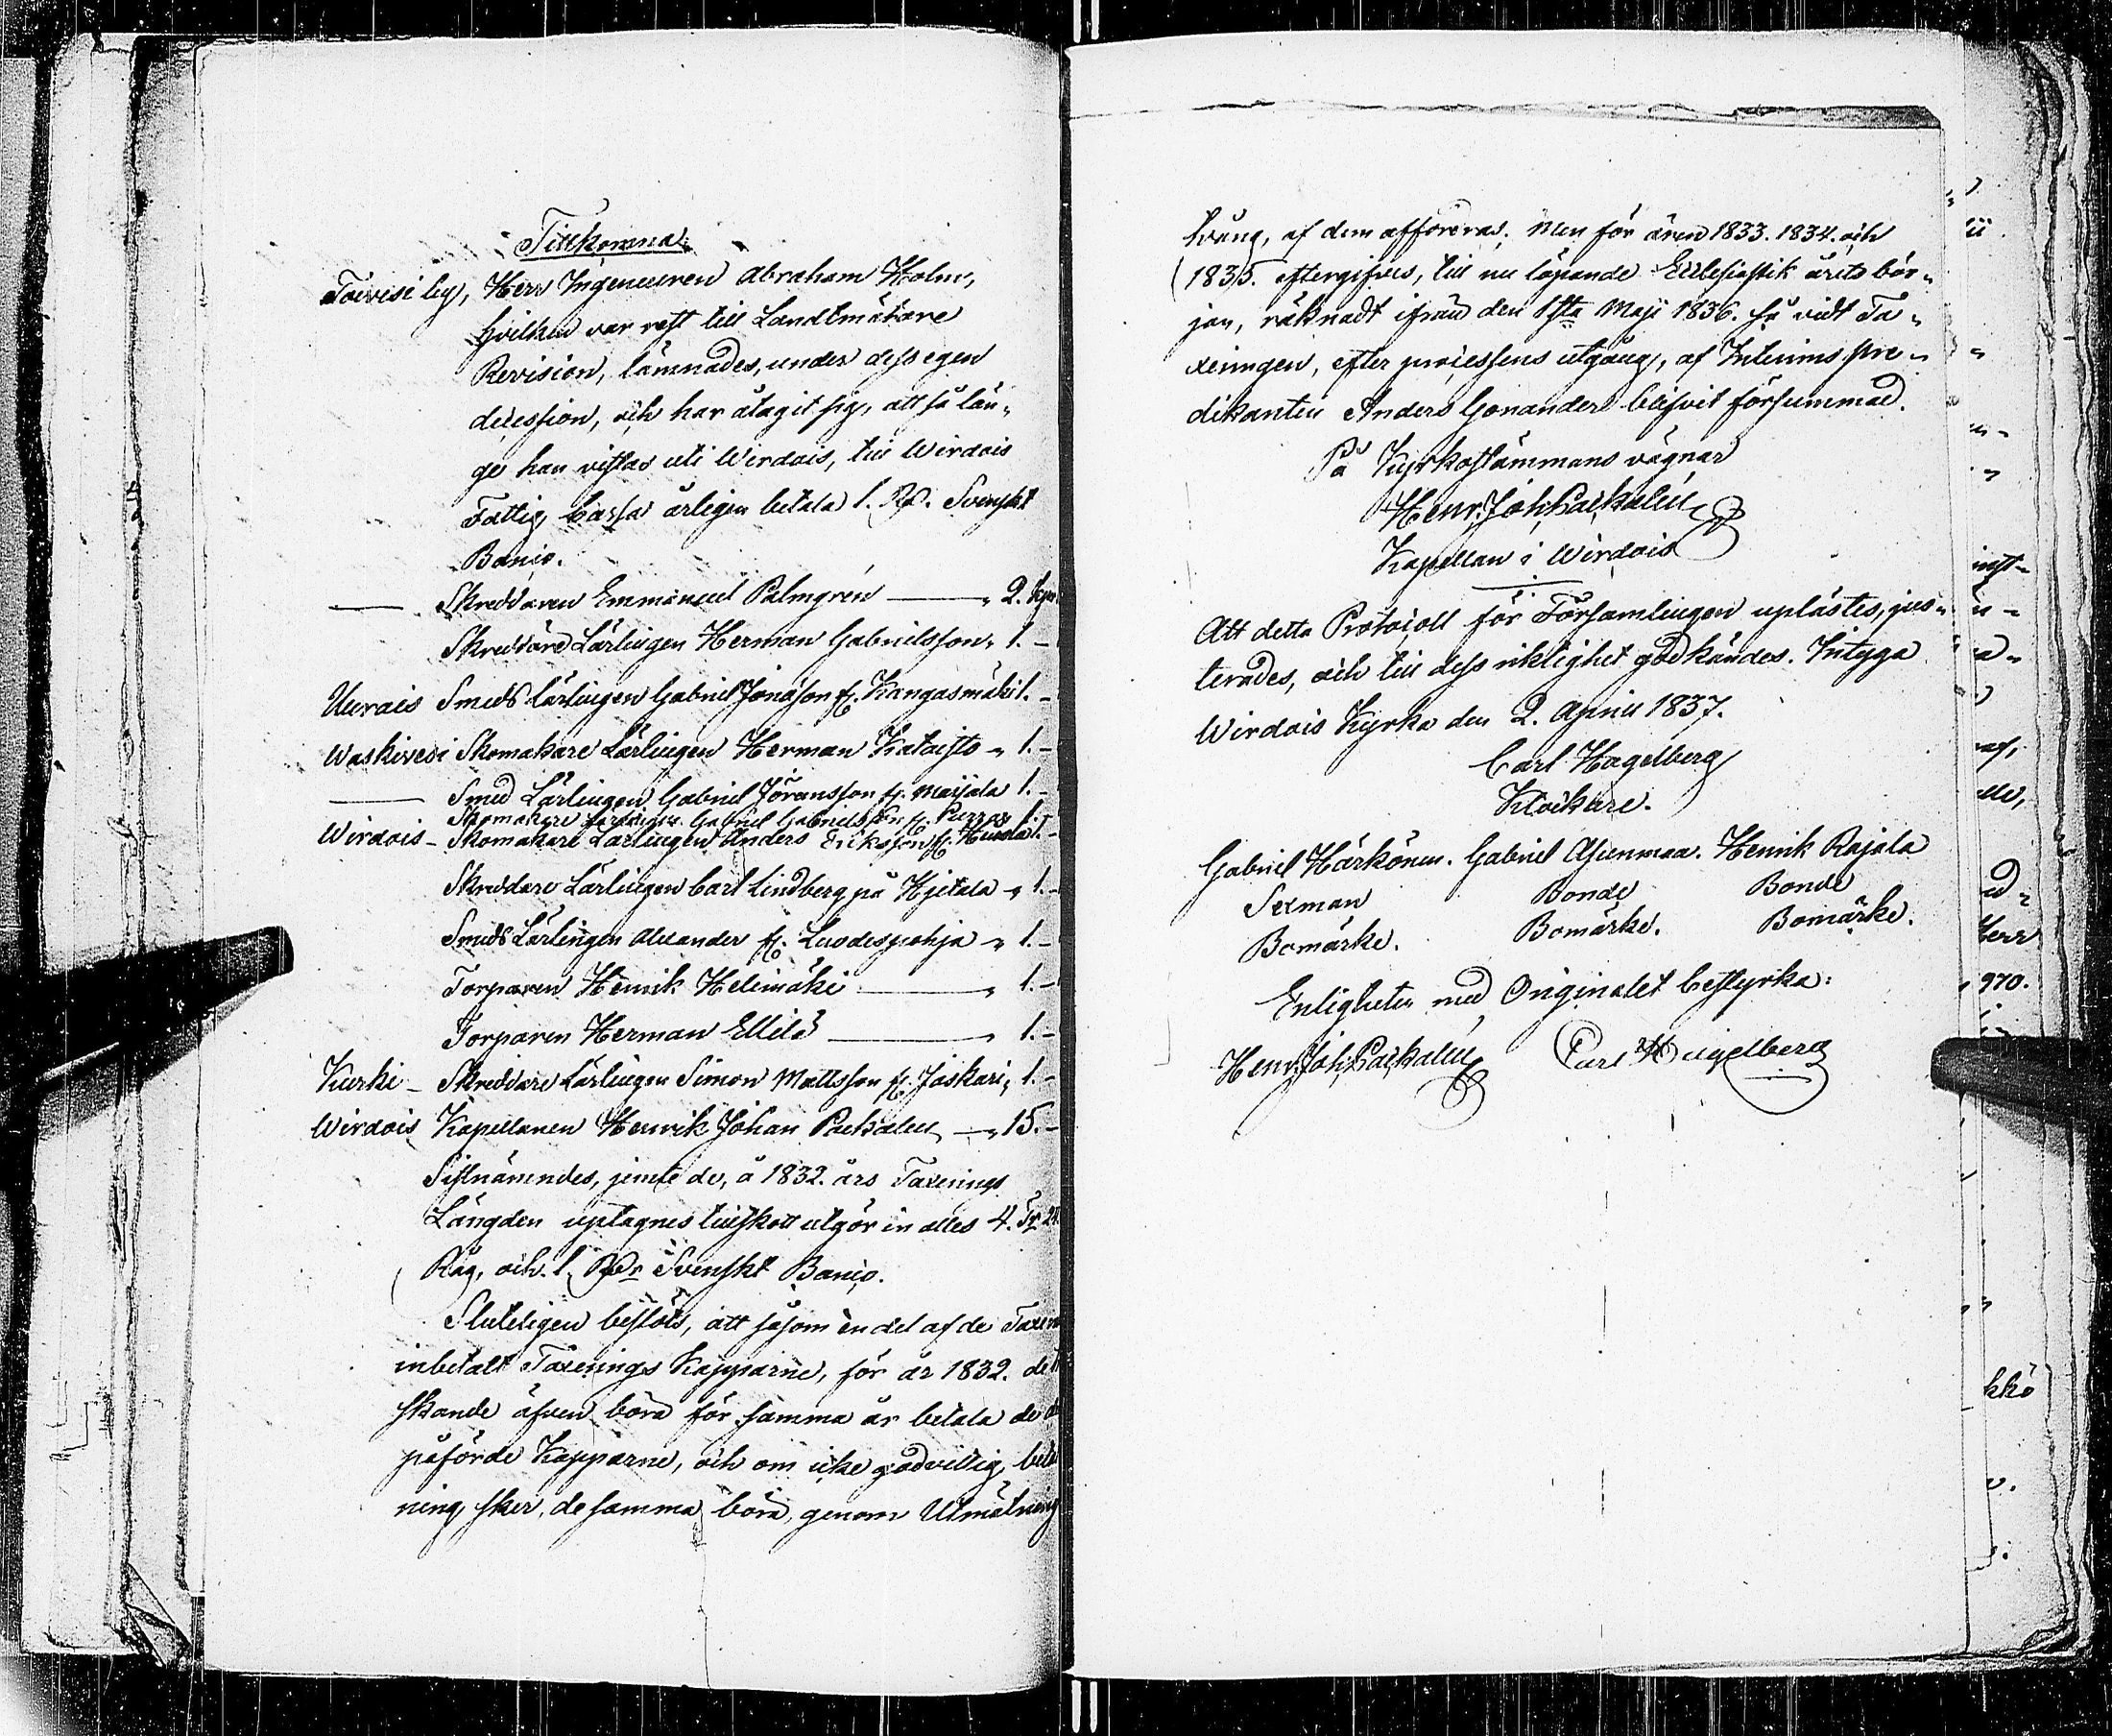 Tillkomna
Toivisi by, Herr Ingeneuren Abraham Holm,
hvilken var rest till Landtmätare
Revision, lämnades, under dess egen
decession, och har åtagit sig, att så län„
ge han vistas uti Wirdois, till Wirdois
Fattig Cassa årligen betala 1. Rd. Svenskt
Banco.
Skreddaren Emmanuel Palmgrén „ 2. kpr
Skreddare Lärlingen Herman Gabrielsson „ 1. –
Uurais Smeds Lärlingen Gabriel Jonasson fr. Kangasmäki 1. –
Waskivesi Skomakare Lärlingen Herman Kataisto „ 1. –
Smed Lärlingen Gabriel Jöransson fr. Maijala 1. –
Skomakare Lärlingen Gabriel Gabrielsson fr. 1.
Wirdois – Skomakare Lärlingen Anders Eriksson fr. 1. –
Skreddare Lärlingen Carl Lindberg på Hjetala „ 1. –
Smeds Lärlingen Alexander fr. Luodespohja „ 1. –
Torparen Henrik Helimäki „ 1. –
Torparen Herman Ellilä „ 1. –
Kurki – Skreddare Lärlingen Simon Mattsson fr. Jäskari „ 1. –
Wirdois Kapellanen Henrik Johan Packalén „ 15. –
Sistnämndes, jemte de, å 1832. års Taxerings
Längden uptagnes tillskott utgör in alles 4. Tr 24
Råg, och 1. Rdr Svenskt Banco.
Sluteligen beslöts, att såsom en del af de
inbetalt Taxerings Kapparne, för år 1832. de
skande äfven böra för samma år betala de
påförde Kapparne, och om icke godvillig
ning sker, de samma böra, genom Utmätning
tvång, af dem affordras. Men för åren 1833. 1834. och
1835. eftergifves, till nu löpande Ecclesiastik årets bör„
jan, räknadt ifrån den 1sta Maji 1836. så vidt Ta„
xeringen, efter processens utgång, af Interims pre„
dikanten Anders Gonander blifvit försummad.
På Kyrkostämmans vägnar
Henr. Joh. Packalén
Kapellan i Wirdois
Att detta Protocoll för Församlingen uplästes, jus„
terades, och till dess riktighet godkändes. Intyga
Wirdois Kyrka den 2. April 1837.
Carl Hagelberg
Klockare.
Gabriel Härkönen. Gabriel Asunmaa. Henrik Rajala
Sexman Bonde Bonde
Bomärke. Bomärke. Bomärke.
Enligheten med Originalet bestyrka:
Henr. Joh. Packalén Carl Hagelberg
970.